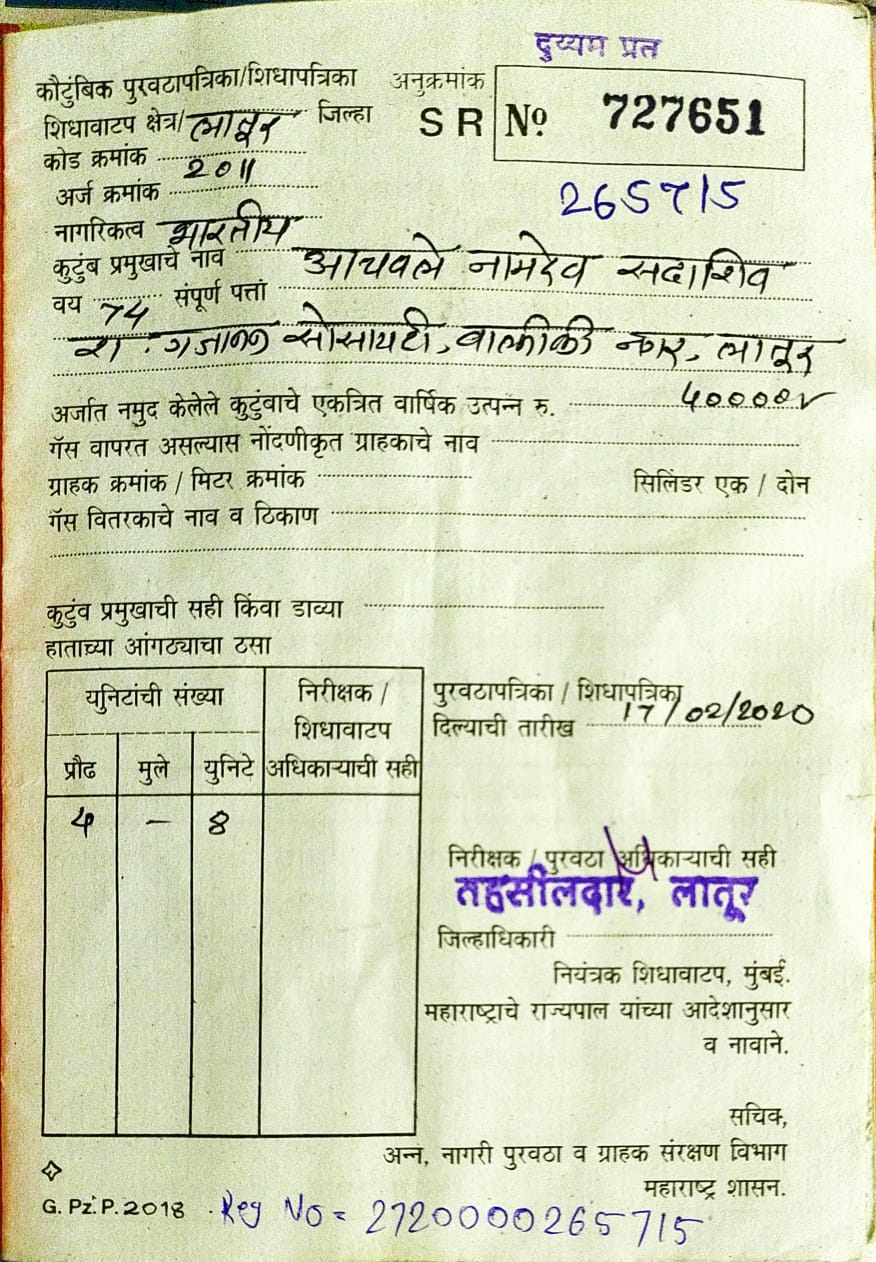 दुय्यम प्रत
कौटुंबिक पुरवठापत्रिका/शिधापत्रिका अनुक्रमांक
शिधावाटप क्षेत्र/ लातूर जिल्हा SR Nº 727651
कोड क्रमांक 2011
अर्ज क्रमांक 265715
नागरिकत्व भारतीय
कुटुंब प्रमुखाचे नाव आचवले नामदेव सदाशिव
वय 74 संपूर्ण पत्ता
रा. गजानन सोसायटी, वाल्मीकी नगर, लातूर
अर्जात नमुद केलेले कुटुंबाचे एकत्रित वार्षिक उत्पन्न रु. 40000
गॅस वापरत असल्यास नोंदणीकृत ग्राहकाचे नाव
ग्राहक क्रमांक / मिटर क्रमांक सिलिंडर एक / दोन
गॅस वितरकाचे नाव व ठिकाण
कुटुंब प्रमुखाची सही किंवा डाव्या
हाताच्या आंगठ्याचा ठसा
युनिटांची संख्या निरीक्षक /
शिधावाटप
प्रौढ मुले युनिटे अधिकाऱ्याची सही
4 – 8
पुरवठापत्रिका / शिधापत्रिका
दिल्याची तारीख 17/02/2020
निरीक्षक / पुरवठा अधिकाऱ्याची सही
तहसीलदार, लातूर
जिल्हाधिकारी
नियंत्रक शिधावाटप, मुंबई.
महाराष्ट्राचे राज्यपाल यांच्या आदेशानुसार
व नावाने.
सचिव,
अन्न, नागरी पुरवठा व ग्राहक संरक्षण विभाग
महाराष्ट्र शासन.
G. Pz. P. 2018 Reg No = 272000265715